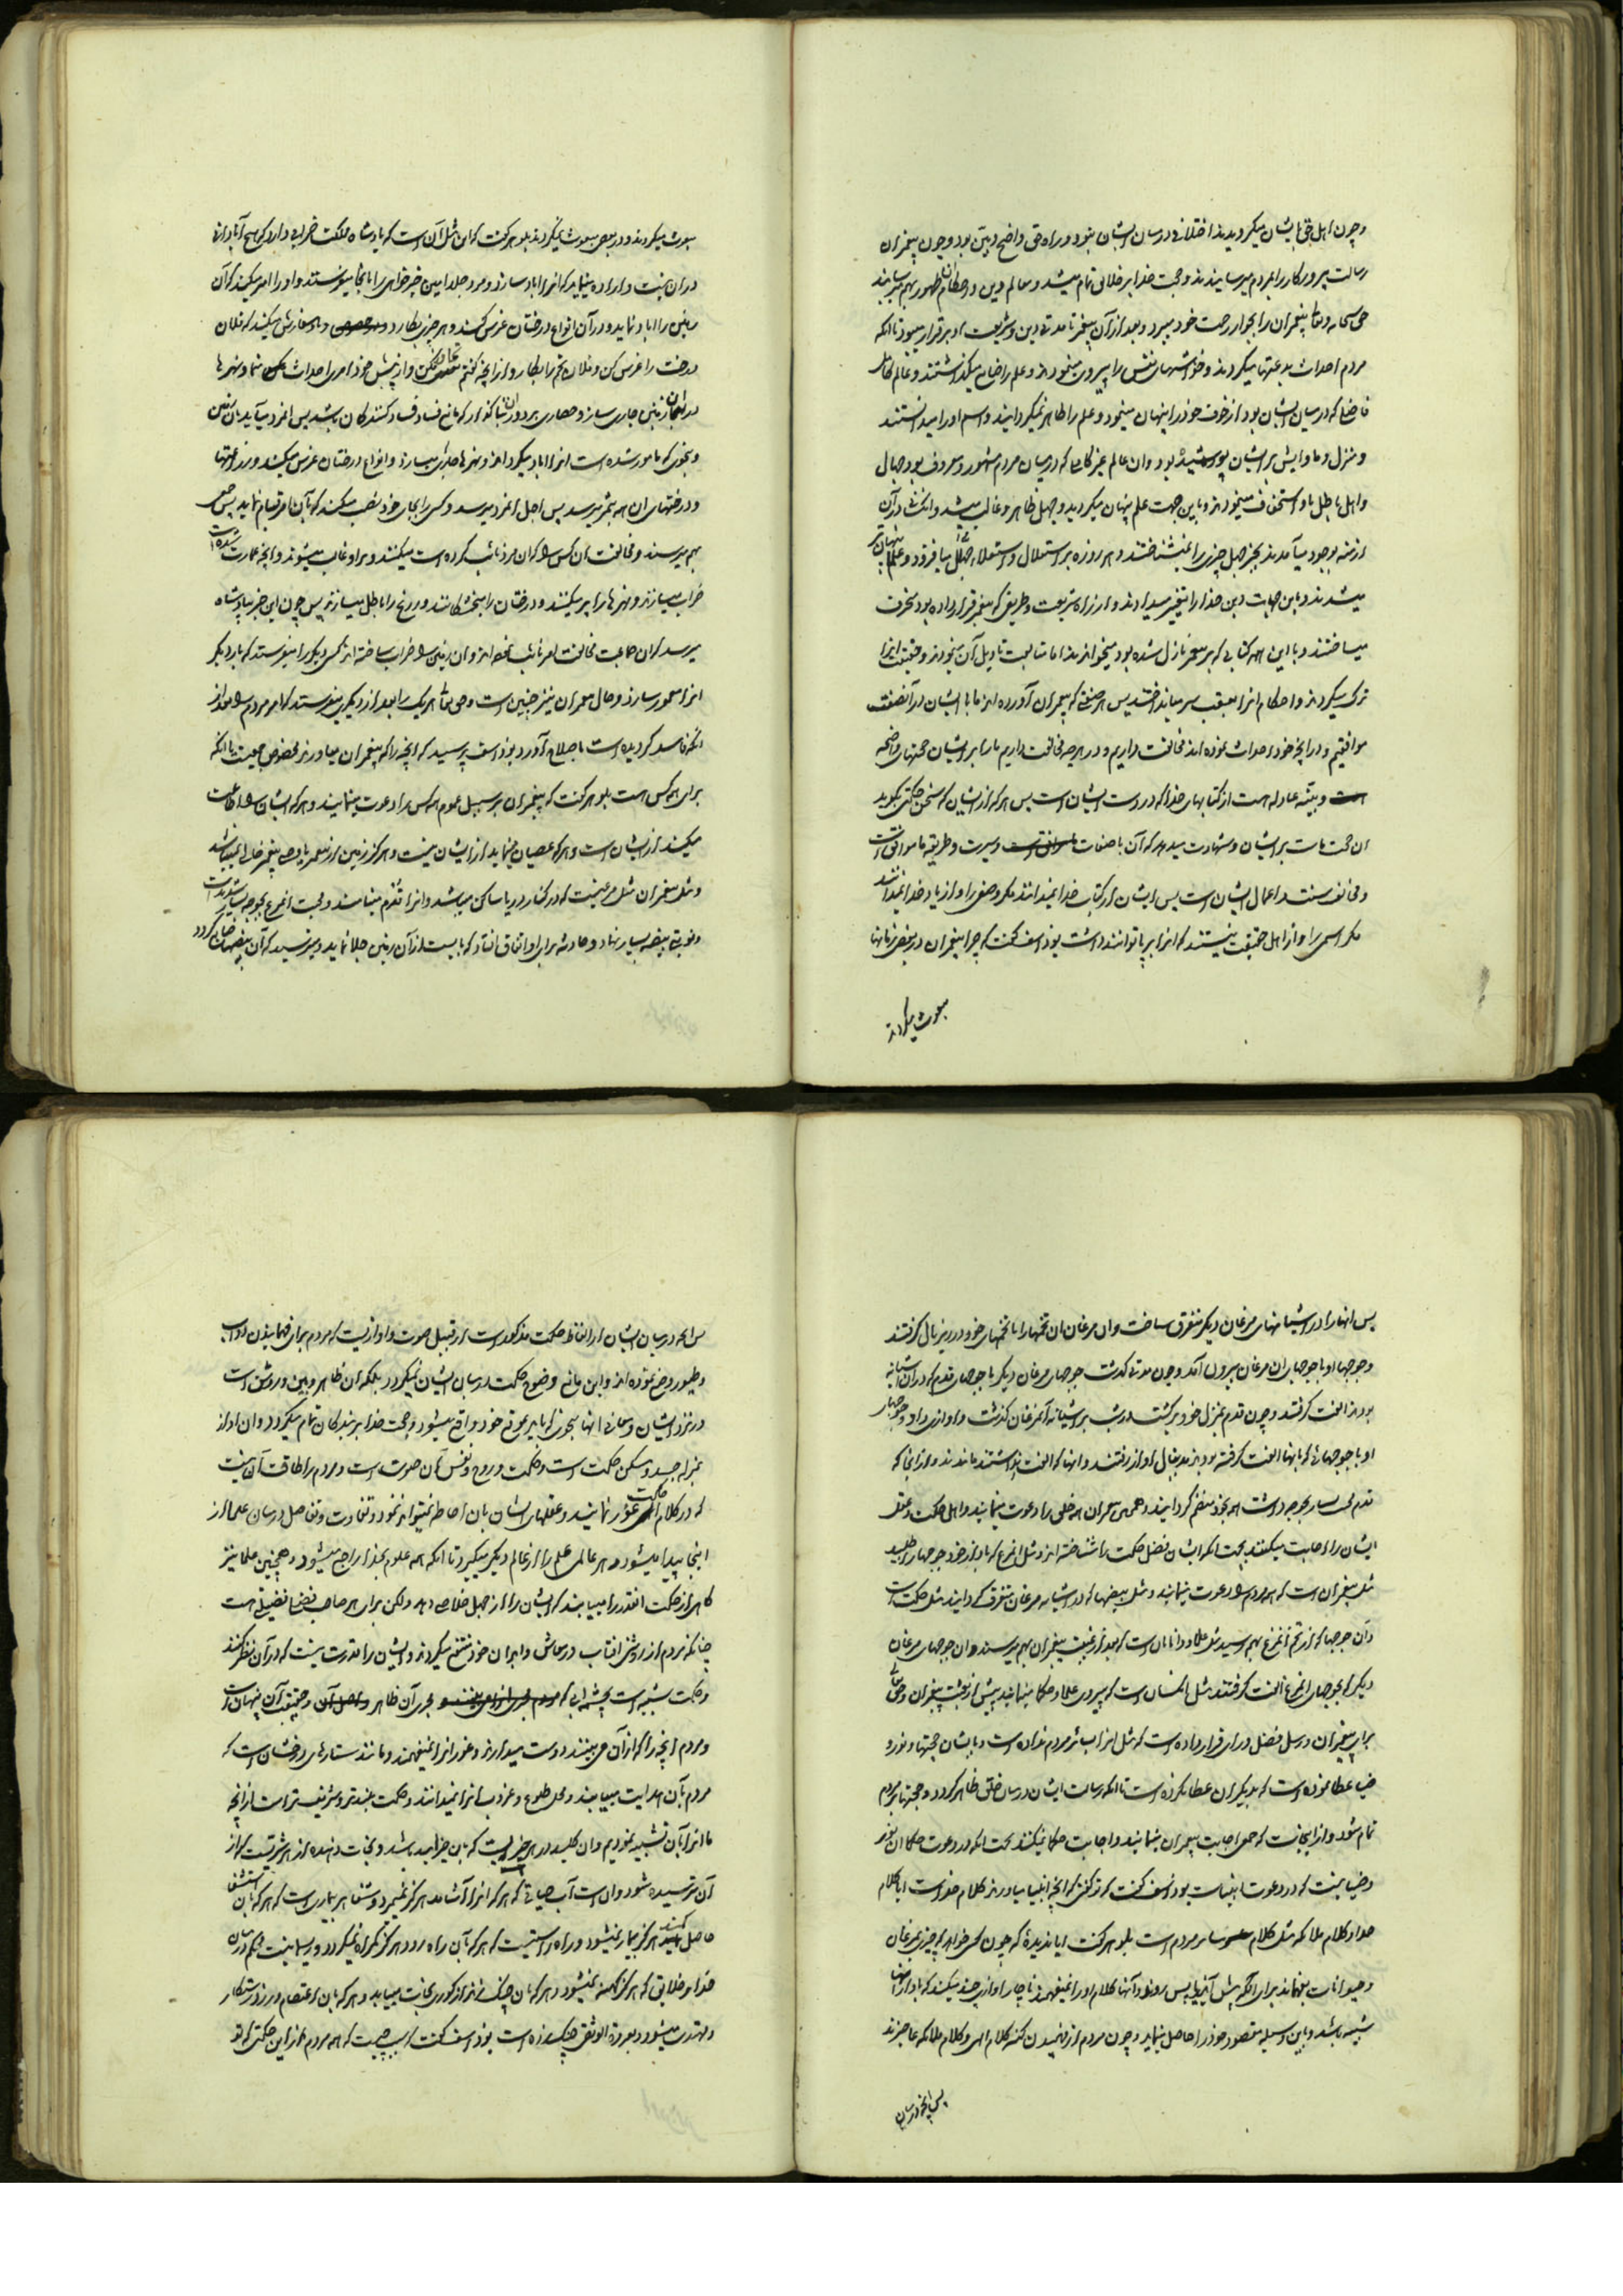 و چون اهل حق بایشان میگرویدند اختلافی در میان ایشان نبود و راه حق واضح و بین بود و چون پیغمبران
رسالت پروردکار را بمردم میرسانیدند و حجت خدا بر خلائق تمام میشد و معالم دین و احکام آن ظهور بهم میرسانید
حق سبحانه و تعالی پیغمبران را بجوار رحمت خود میبرد و بعد از آن پیغمبر تا مدتی دین و شریعت او برقرار میبود تا انکه
مردم احداث بدعتها میکردند و خواهشهای نفس را پیروی مینمودند و علم را ضایع میکذاشتند و عالم کامل
فاضل که در میان ایشان بود از خوف خود را پنهان مینمود و علم را ظاهر نمیکردانید و اسم او را میدانستند
و منزل و ماوایش بر ایشان پوشیده بود و ان عالم غیر کامل که در میان مردم مشهور و معروف بود جهال
و اهل باطل باو استخفاف مینمودند و باین جهت علم پنهان میکردید و جهل ظاهر و غالب میشد و انکه در آن
ازمنه بوجود میآمدند بجز جهل چیزی را نمیشناختند و هر روزه بر استقلال و استعلاء جهل میافزود و علم پنهان تر
میشدند و باین جهات دین خدا را تغییر میدادند و از راه شریعت و طریقی که پیغمبر قرار داده بود منحرف
میساختند و با این همه کتابی که بر پیغمبر نازل شده بود میخواندند اما متابعت تاویل آن نمیکردند و حقیقت انرا
ترک میکردند و احکام انرا بعقب سر میانداختند پس هر صفتی که پیغمبران آورده اند ما با ایشان در آنصفت
موافقیم و در انچه خود احداث نموده اند مخالفت داریم و در هر چه مخالفت داریم ما را بر ایشان حجتهای واضحه
و بینه عادله هست از کتابهای خدا که در دست ایشان است پس هر که از ایشان که سخن حکمتی بگوید
ان حجت ماست بر ایشان و شهادت میدهد که آن با صفات و سیرت و طریقه ما موافق است
و مخالف سنت و اعمال ایشان است پس ایشان از کتاب خدا نمیدانند مکر وصفی را و از یاد خدا نمیدانند
مکر اسمی را و از اهل حقیقت نیستند که انرا بر پا توانند داشت یوذاسف کفت که چرا پیغمبران در بعض زمانها
مبعوث میکردند
مبعوث میکردند و در بعض مبعوث نمیکردند بلوهر کفت که این مثل آن است که پادشاه مملکت خرابی دارد که هیچ آبادانی
در ان نیست و اراده مینماید که انرا اباد سازد و مرد جلد امین خیرخواهی را بانجا میفرستد و او را امر میکند که آن
زمین را اباد نماید و در آن انواع درختان غرس کند و هر چیز بکارد و باو سفارش میکند که فلان
درخت را غرس کن و فلان تخم را بکار و از انچه کفتم تجاوز مکن و از پیش خود امری احداث منما و نهرها
در انجا جاری ساز و حصاری بر دور آن بنا کذار که مانع فساد فساد کنندکان باشد پس انمرد میآید بآن زمین
و بنحوی که مامور شده است انرا اباد میکرداند و نهرها جاری میسازد و انواع درختان غرس میکند و زراعتها
و درختهای ان همه بثمر میرسد پس اجل انمرد میرسد و کسی را بجای خود نصب میکند که بآن امر قیام نماید پس جمعی
بهم میرسند و مخالفت آن کس را که آن مرد نائب کرده است میکنند و بر او غالب میشوند و انچه عمارت شده است
خراب میسازند و نهرها را پر میکنند و درختان را میخشکانند و زرع را باطل میسازند پس چون این خبر بپادشاه
میرسد که ان جماعت مخالفت امر نائب نموده اند و ان زمین را خراب ساخته اند کس دیکر را میفرستد که بار دیکر
انرا معمور سازد و حال پیغمبران نیز چنین است و حق تعالی هر یک را بعد از دیکری میفرستد که امر مردم را بعد از
انکه فاسد کردیده است باصلاح آورد یوذاسف پرسید که انچه را که پیغمبران میاورند مخصوص جمعیت یا انکه
برای همه کس است بلوهر کفت که پیغمبران بر سبیل عموم همه کس را دعوت مینمایند و هر که ایشان را اطاعت
میکند از ایشان است و هر که عصیان مینماید از ایشان نیست و هرکز زمین از پیغمبر یا وصی پیغمبر خالی نمیباشد
و مثل پیغمبران مثل مرغیست که در کنار دریا ساکن میباشد و انرا قدم مینامند و محبت انمرغ بجوجه بسیار شدید است
و نوبتی بیضه بسیار نهاد و حادثه برای او اتفاق افتاد که بایست از آن زمین جلا نماید و میترسید که آن بیضها ضایع کردد
پس انها را در آشیانهای مرغان دیکر متفرق ساخت و ان مرغان ان تخمها را با تخمهای خود در زیر بال کرفتند
و جوجهای او با جوجهای ان مرغان بیرون آمد و چون مدتی کذشت جوجهای مرغان دیکر با جوجهای قدم که در ان آشیانه
بودند الفت کرفتند و چون قدم بمنزل خود برکشت در شب بر آشیانه آنمرغان کذشت و اوازی داد و جوجهای
او با جوجهائی که بانها الفت کرفته بودند بدنبال آواز رفتند و انها که الفت نداشتند ماندند و از انجا که
قدم محبت بسیار بجوجه داشت همه بخود منضم کردانید و همچنین پیغمبران همه خلق را دعوت مینمایند و اهل حکمت و عقل
ایشان را اجابت میکنند بجهت انکه ایشان فضل حکمت را شناخته اند و مثل انمرغ که باواز خود جوجها را طلبید
مثل پیغمبران است که همه مردم را دعوت مینمایند و مثل بیضها که در آشیانه مرغان متفرق کردانید مثل حکمت است
و آن جوجها که از تخم آنمرغ بهم رسید مثل علما و دانایان است که بعد از غیبت پیغمبران بهم میرسند و ان جوجهای مرغان
دیکر که بجوجهای انمرغ الفت کرفتند مثل انکسان است که پیروی علما و حکما مینمایند پیش از بعثت پیغمبران و حق تعالی
برای پیغمبران و رسل فضل و رای قرار داده است که مثل انرا بسائر مردم نداده است و بایشان حجتها و نور و
ضیا عطا نموده است که بدیکران عطا نکرده است تا انکه رسالت ایشان در میان خلق ظاهر کردد و حجتها بر مردم
تمام شود و از اینجاست که جمعی اجابت پیغمبران مینمایند و اجابت حکما نمیکنند بجهت انکه در دعوت حکما ان نور
و ضیا نیست که در دعوت انبیاست یوذاسف کفت که تو کفتی که انچه انبیا میاورند کلام خداست ایا کلام
خدا و کلام ملائکه مثل کلام سایر مردم است بلوهر کفت ایا ندیدۀ که چون کسی خواهد که چیزی بمرغان
و حیوانات بفهماند برای انکه پیش آیند یا پس روند و آنها کلام او را نمیفهمند ناچار اوازی چند میکند که باواز انها
شبیه باشد و باین وسیله مقصود خود را حاصل مینماید و چون مردم از فهمیدن کنه کلام الهی و کلام ملائکه عاجزند
پس انچه در میان
پس انچه در میان ایشان از الفاظ حکمت مذکور است از قبیل صوت و اوازیست که مردم برای فهمانیدن دواب
و طیور وضع نموده اند و این مانع وضوح حکمت در میان ایشان نمیکردد بلکه ان ظاهر و بین و روشن است
در نزد ایشان و معانی انها بنحوی که باید بموقع خود واقع میشود و حجت خدا بر بندکان تمام میکردد و ان اواز
بمنزله جسد و مسکن حکمت است و حکمت روح و نفس آن صوت است و مردم را طاقت آن نیست
که در کلام حکمت غور نمایند و عقلهای ایشان بان احاطه نمیتواند نمود و تفاوت و تفاضل در میان علما از
اینجا پیدا میشود و هر عالمی علم را از عالم دیکر میکیرد تا انکه همه علوم بخدا راجع میشود و همچنین علما نیز
کاهی از حکمت انقدر را مییابند که ایشان را از جهل خلاصی دهد ولکن برای هر صاحب فضلی فضیلتی هست
چنانکه مردم از روشنی افتاب در معاش و ابدان خود منتفع میکردند و ایشان را قدرت نیست که در آن نظر کنند
و حکمت شبیه است بچشمه ابی که مجری آن ظاهر و حقیقت آن پنهان است
و مردم انچه را که از آن میبینند دوست میدارند و غور انرا نمیفهمند و مانند ستارهای درخشان است که
مردم بآن هدایت مییابند و محل طلوع و غروب انرا نمیدانند و حکمت بلندتر و شریفتر است از انچه
ما انرا بآن تشبیه نمودیم و ان کلید در هر خیریست که بان خیر امید باشد و نجات دهنده از هر شریست که از
آن ترسیده شود و ان است آب حیاتی که هر که انرا آشامد هرکز نمیرد و شفا هر بیماری است که هر که بان استشفا
حاصل کند هرکز بیمار نمیشود و راه راستیست که هر که بآن راه رود هرکز کمراه نمیکردد و ریسمانیست محکم در میان
خدا و خلایق که هرکز کهنه نمیشود و هر که بان چنک زند از کوری نجات مییابد و هر که بان اعتصام ورزد رستکار
و مهتدی میشود و بعروة الوثقی چنک زده است یوذاسف کفت که سبب چیست که همه مردم از این حکمتی که تو